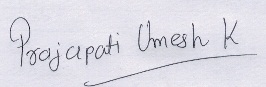 Prajapati Umesh K